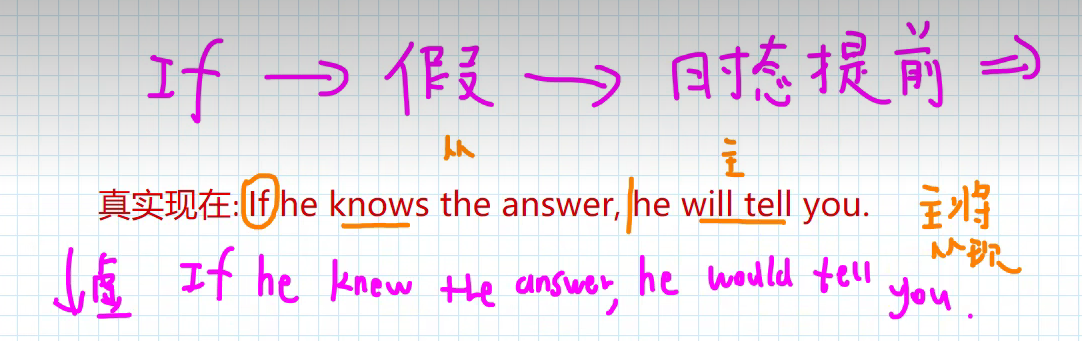 If → 假 → 时态提前 ⇒
从 主
真实现在: If he knows the answer, he will tell you. 主将
从现
↓虚 If he knew the answer, he would tell you.